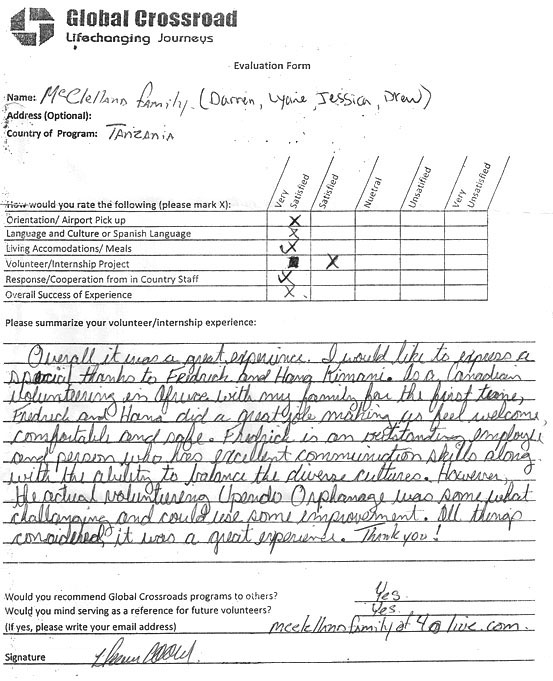 Global Crossroad
Lifechanging Journeys
Evaluation Form
Name: McClelland family (Darren, Lyane, Jessica, Drew)
Address (Optional):
Country of Program: Tanzania
How would you rate the following (please mark X): Very Satisfied Satisfied Nuetral Unsatified Very Unsatisfied
Orientation/ Airport Pick up X
Language and Culture or Spanish Language X
Living Accomodations/ Meals X
Volunteer/Internship Project X
Response/Cooperation from in Country Staff X
Overall Success of Experience X
Please summarize your volunteer/internship experience:
Overall it was a great experience. I would like to express a
special thanks to Fredrick and Hans Kimani. As a Canadian
volunteering in Africa with my family for the first time,
Fredrick and Hans did a great job making us feel welcome,
comfortable and safe. Fredrick is an outstanding employe
and person who has excellent communication skills along
with the ability to balance the diverse cultures. However,
the actual volunteering Upendo Orphanage was some what
challanging and could use some improvement. All things
considered, it was a great experience. Thank you!
Would you recommend Global Crossroads programs to others? Yes
Would you mind serving as a reference for future volunteers? Yes
(If yes, please write your email address) mcclellandfamily of 4@live.com
Signature